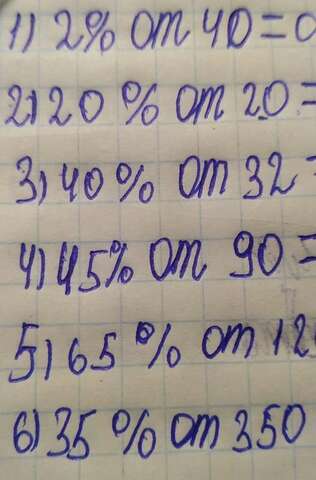 1) 2% от 40=0
2) 20% от 20=
3) 40% от 32=
4) 45% от 90=
5) 65% от 12
6) 35% от 350